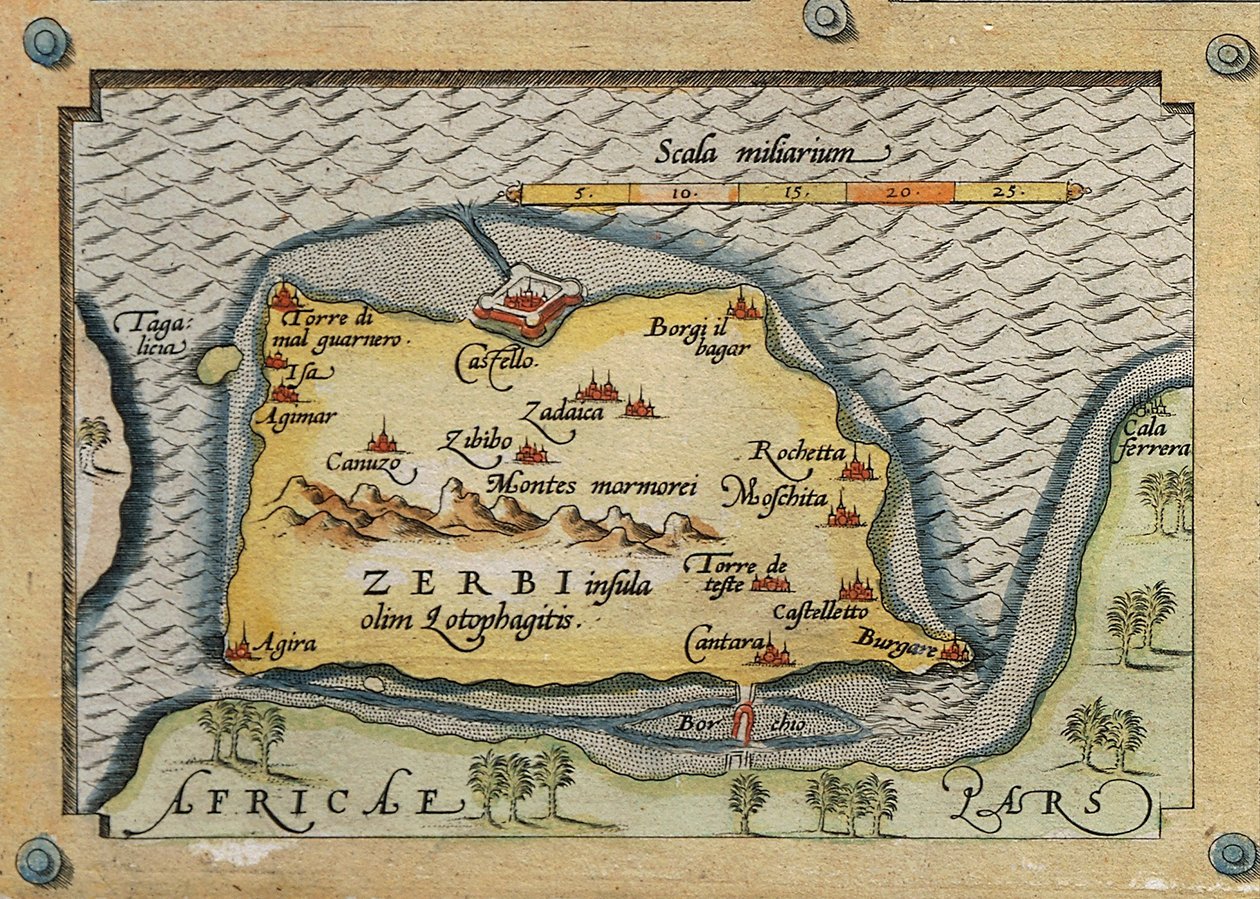 Scala miliarium
5. 10. 15. 20. 25.
Taga:
licia
Torre di
mal guarnero.
Isa
Agimar
Castello.
Borgi il
bagar
Zadaica
Zibibo
Canuzo
Rochetta
Moschita
Montes marmorei
Cala
ferrera
Torre de
teste
Castelletto
ZERBI insula
olim Lotophagitis.
Agira
Cantara
Burgare
Bor chio
AFRICAE PARS